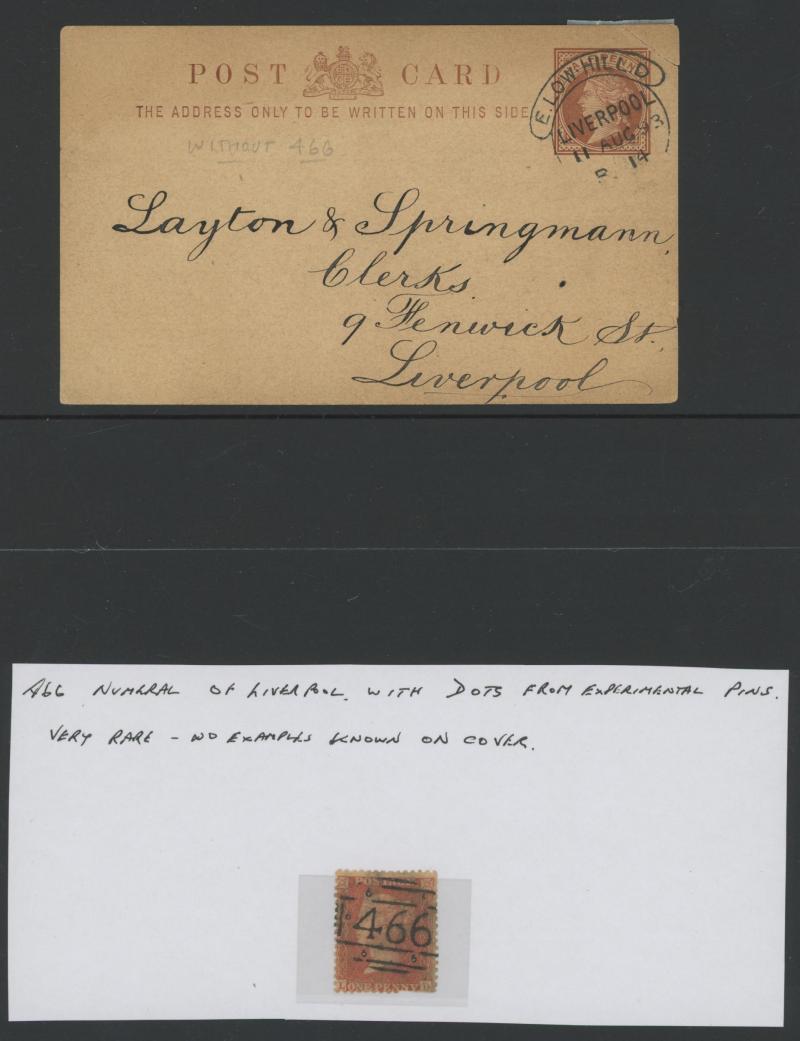 POST CARD
THE ADDRESS ONLY TO BE WRITTEN ON THIS SIDE
E. LOW-HILL. D
LIVERPOOL
11 AUG 93
14
WITHOUT 466
Layton & Springmann,
Clerks.
9 Fenwick St.,
Liverpool
466 NUMERAL OF LIVERPOOL. WITH DOTS FROM EXPERIMENTAL PINS.
VERY RARE - NO EXAMPLES KNOWN ON COVER.
POSTAGE
466
ONE PENNY